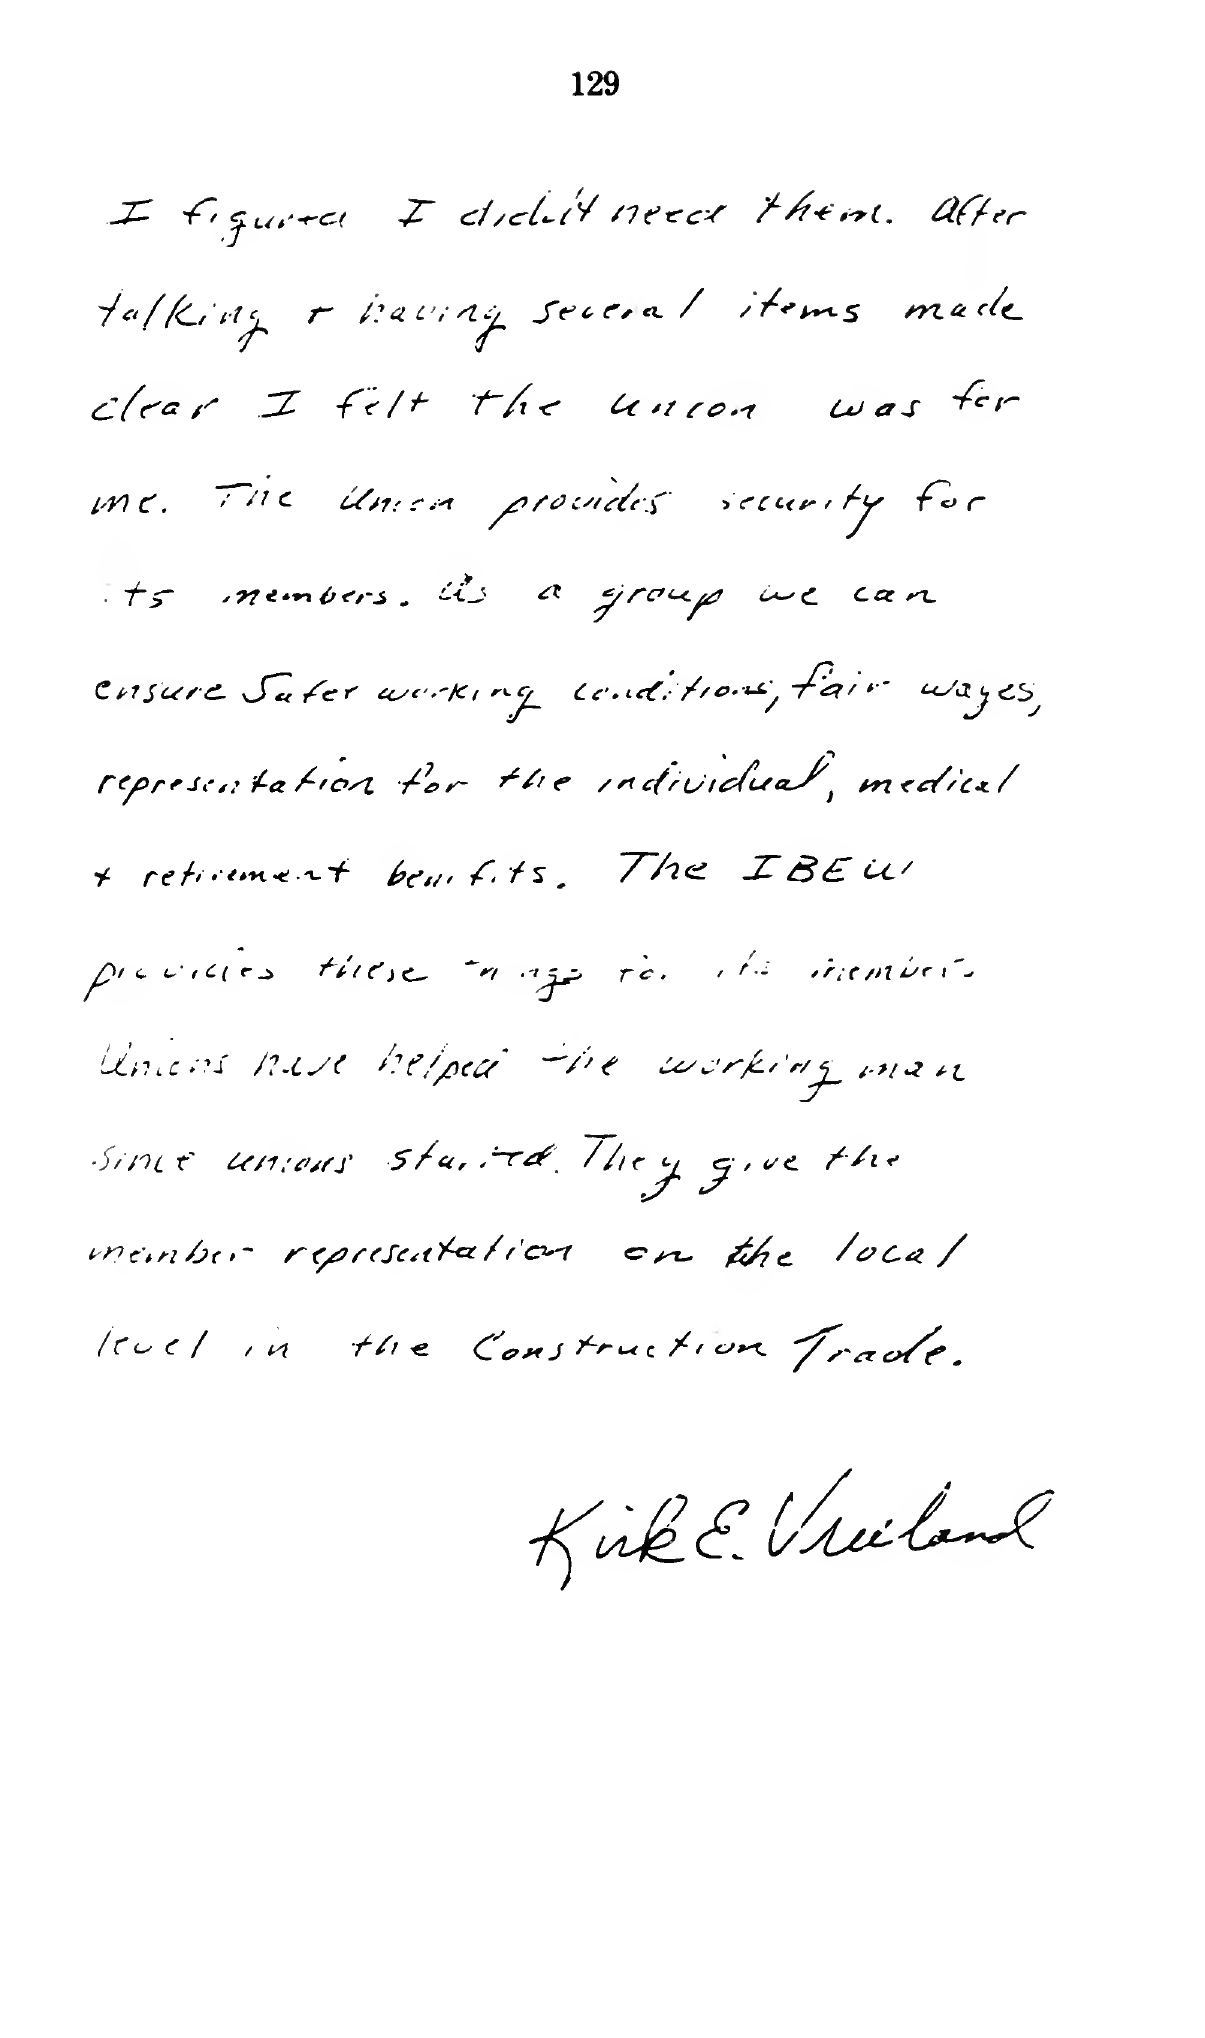 129
I figured I didn't need them. After
talking + having several items made
clear I felt the union was for
me. The Union provides security for
its members. As a group we can
ensure Safer working conditions, fair wages,
representation for the individual, medical
+ retirement benifits. The IBEW
provides these things for its members.
Unions have helped the working man
Since unions started. They give the
member representation on the local
level in the Construction Trade.
Kirk E. Vreeland